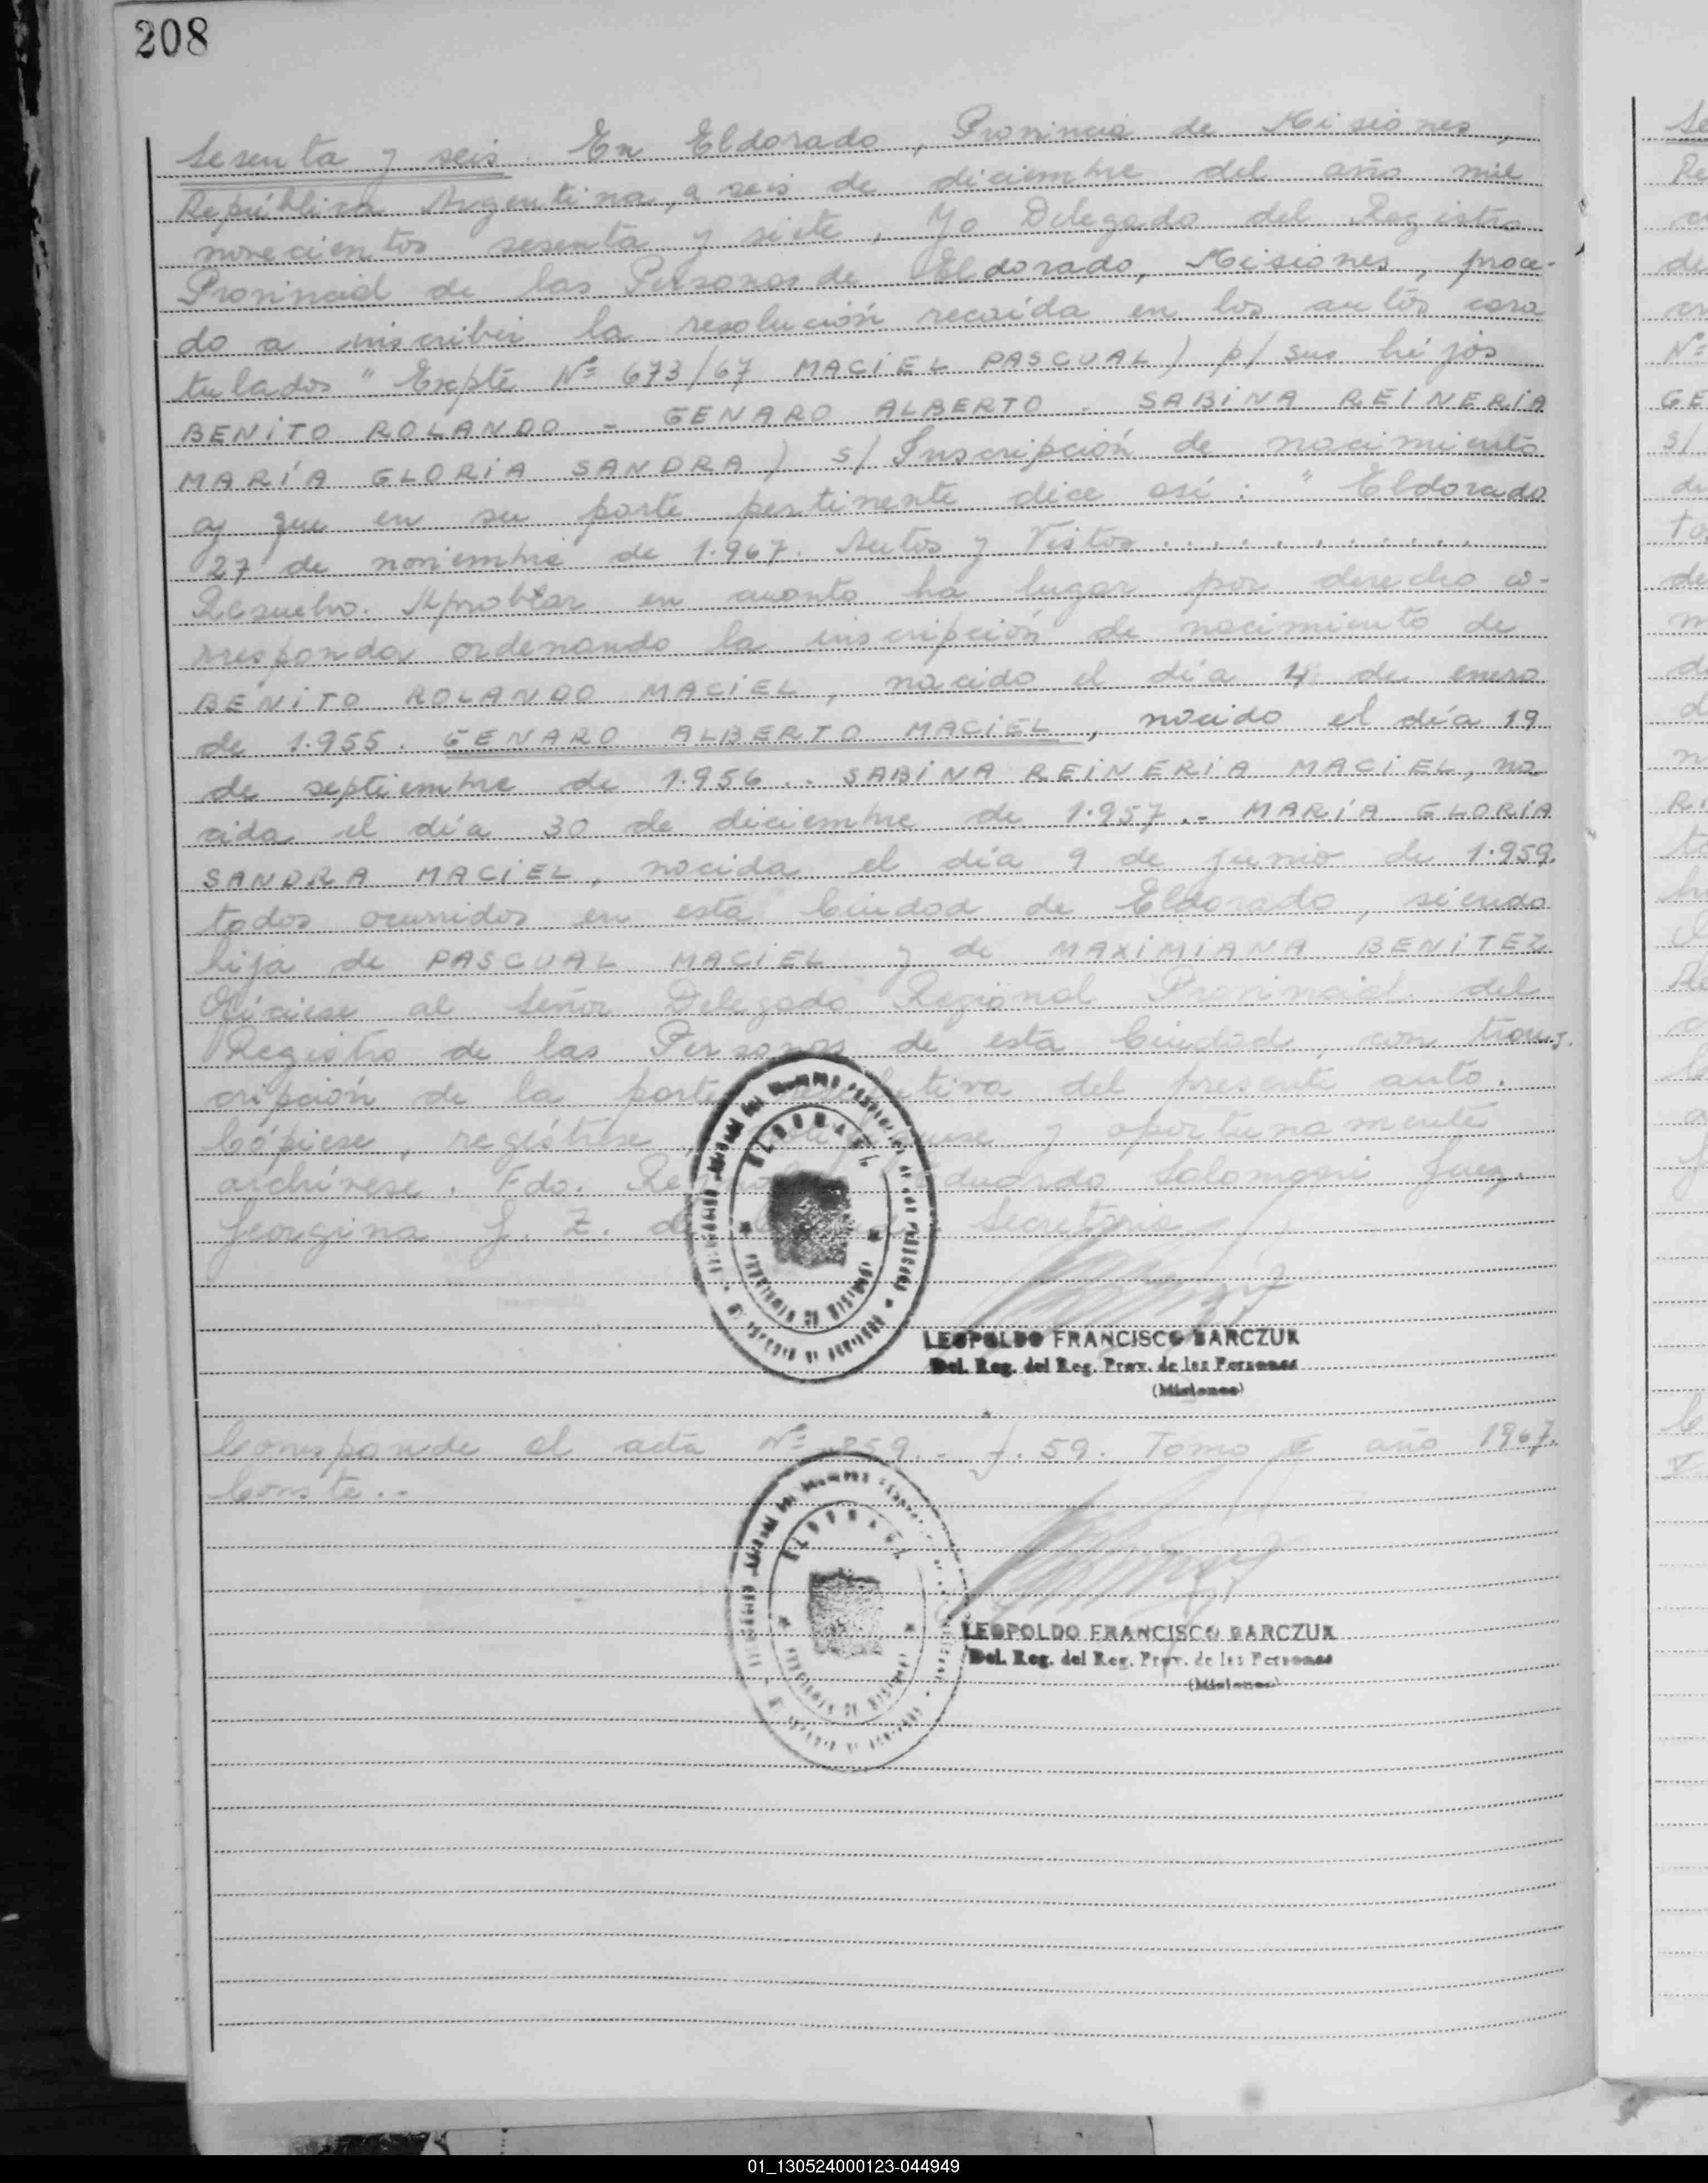 208
Sesenta y seis. En Eldorado, Provincia de Misiones,
República Argentina, a seis de diciembre del año mil
novecientos sesenta y siete, Yo Delegado del Registro
Provincial de las Personas de Eldorado, Misiones, proce-
do a inscribir la resolución recaída en los autos cara
tulados "Expte Nº 673/67 MACIEL PASCUAL) p/ sus hijos
BENITO ROLANDO - GENARO ALBERTO - SABINA REINERIA
MARÍA GLORIA SANDRA) s/ Inscripción de nacimiento
y que en su parte pertinente dice así: "Eldorado
27 de noviembre de 1.967. Autos y Vistos . . . . . . . . . . . .
Resuelvo. Aprobar en cuanto ha lugar por derecho co-
rresponda ordenando la inscripción de nacimiento de
BENITO ROLANDO MACIEL, nacido el día 4 de enero
de 1.955. GENARO ALBERTO MACIEL, nacido el día 19
de septiembre de 1.956.. SABINA REINERIA MACIEL, na
cida el día 30 de diciembre de 1.957.- MARÍA GLORIA
SANDRA MACIEL, nacida el día 9 de junio de 1.959.
todos ocurridos en esta Ciudad de Eldorado, siendo
hija de PASCUAL MACIEL y de MAXIMIANA BENITEZ
Ofíciese al Señor Delegado Regional Provincial del
Registro de las Personas de esta Ciudad, con trans.
cripción de la parte resolutiva del presente auto.
Cópiese, regístrese, y oportunamente
archívese. Fdo. Eduardo Salomoni Juez.
Georgina J. Z. de Secretaria
ELDORADO
PROVINCIA DE MISIONES
LEOPOLDO FRANCISCO BARCZUK
Del. Reg. del Reg. Prov. de las Personas
(Misiones)
Corresponde al acta Nº 259.- f. 59. Tomo año 1967.
Conste.-
ELDORADO
PROVINCIA DE MISIONES
LEOPOLDO FRANCISCO BARCZUK
Del. Reg. del Reg. Prov. de las Personas
(Misiones)
01_130524000123-044949